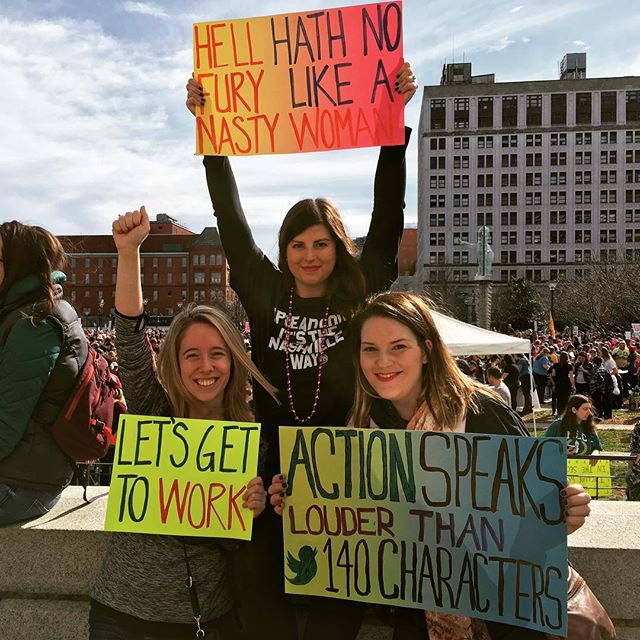 HELL HATH NO
FURY LIKE A
NASTY WOMAN!
SPREADGOOD
IS THE
NASHVILLE
WAY
LET'S GET
TO WORK
ACTION SPEAKS
LOUDER THAN
140 CHARACTERS